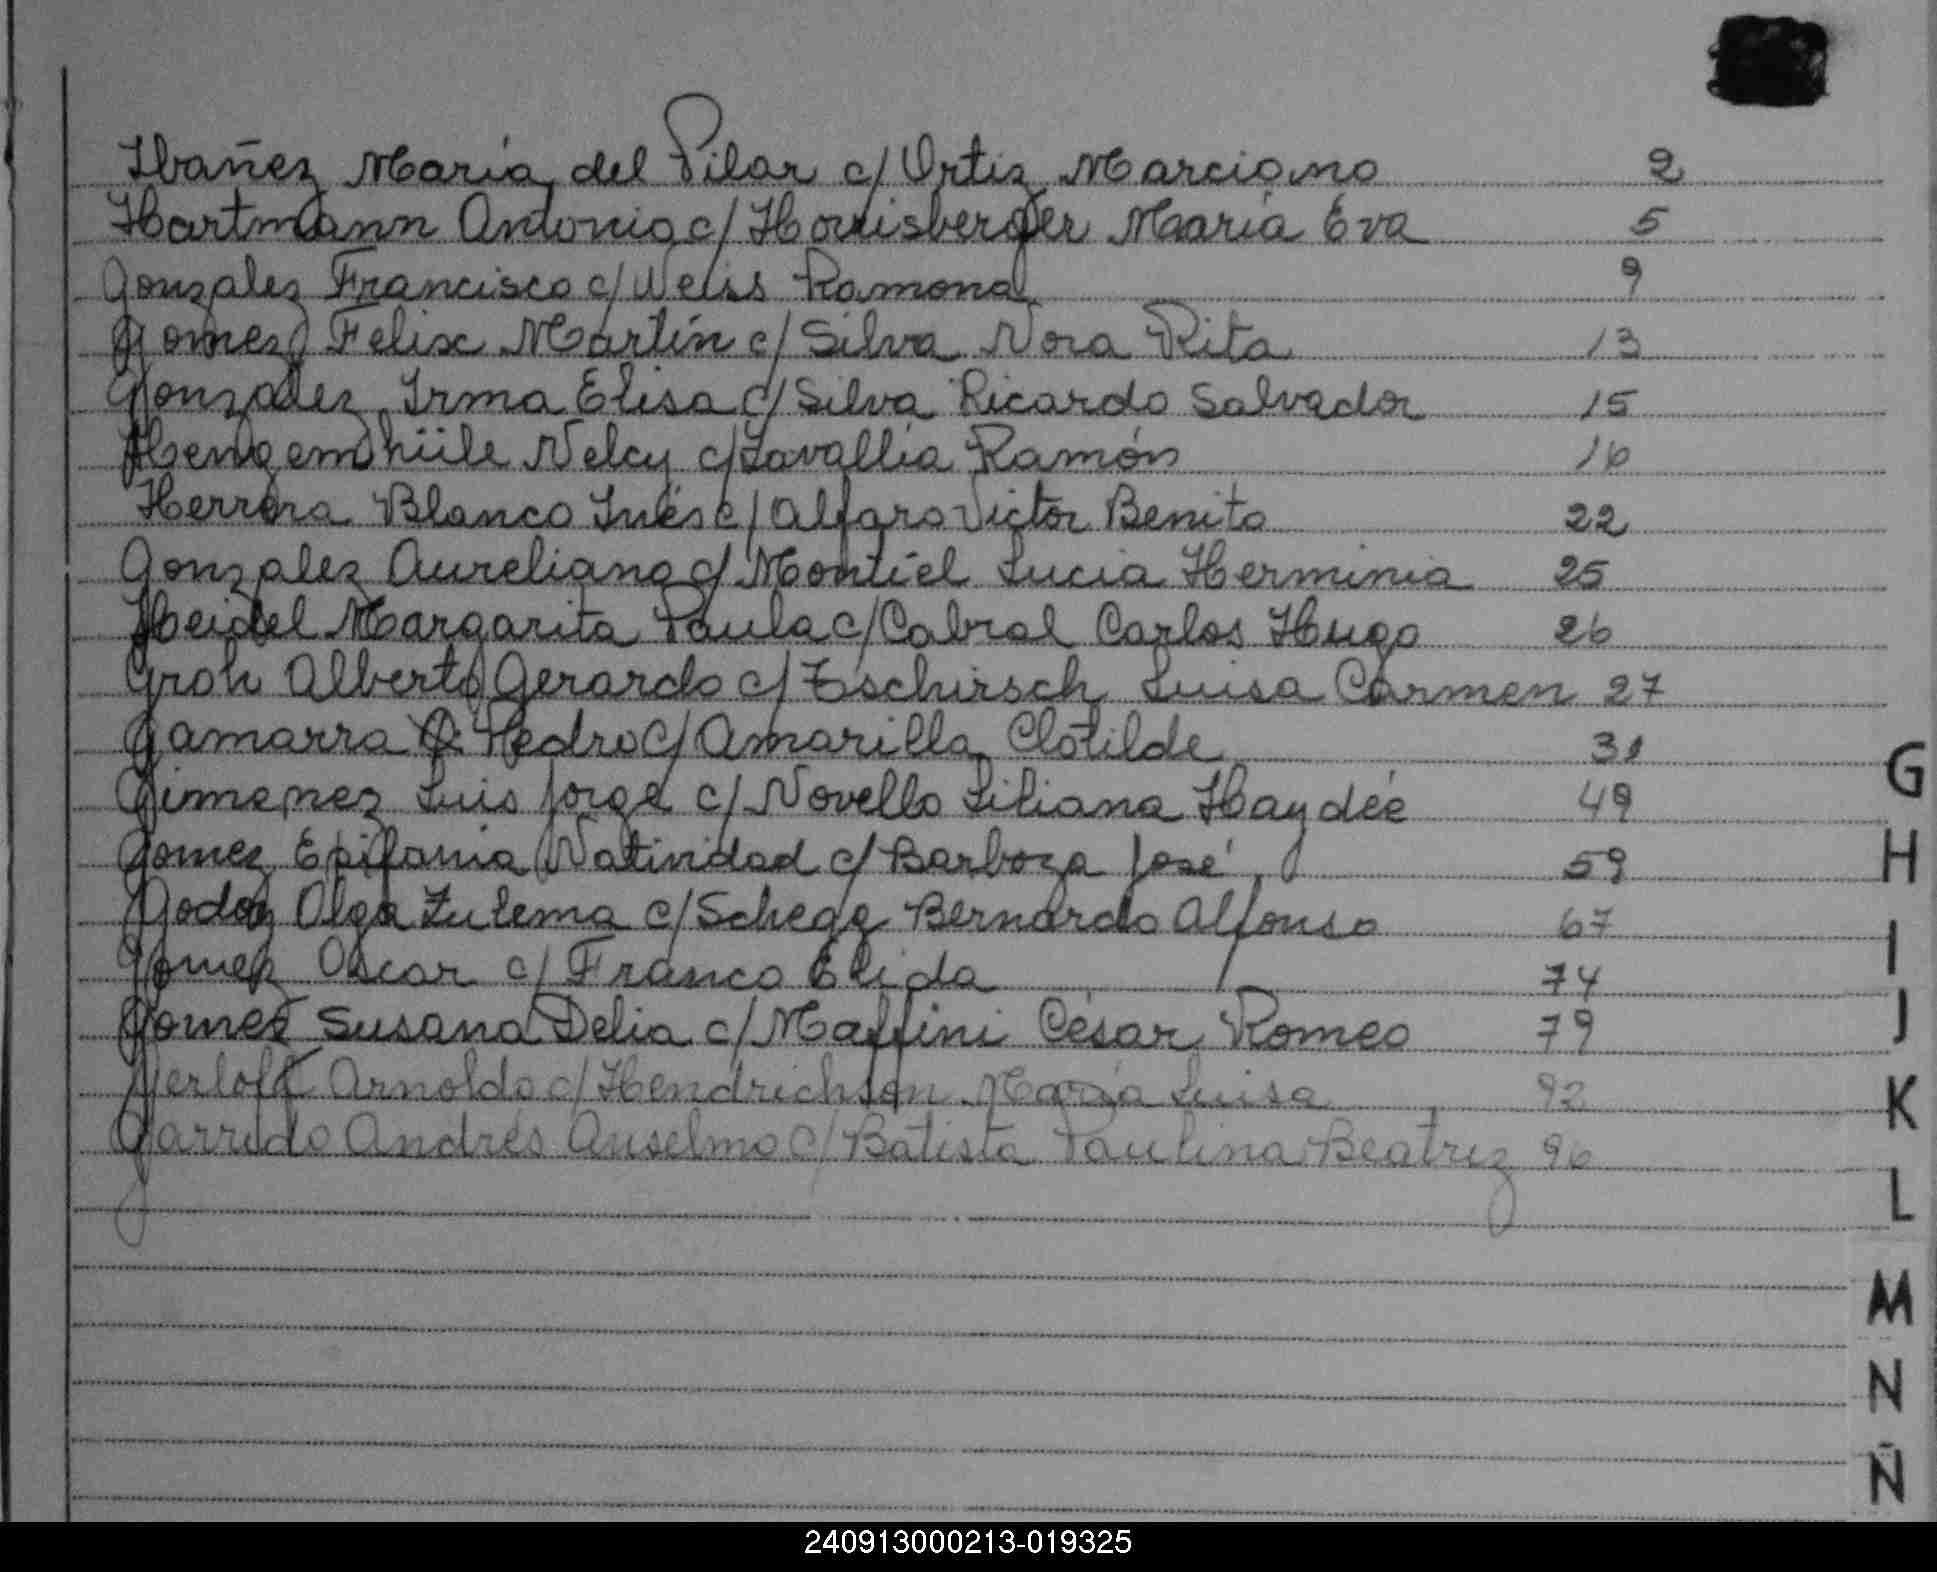 Ibañez María del Pilar c/ Ortiz Marciano 2
Hartmann Antonio c/ Horrisberger María Eva 5
Gonzalez Francisco c/ Weiss Ramona 9
Gomez Felix Martín c/ Silva Nora Rita 13
Gonzalez Irma Elisa c/ Silva Ricardo Salvador 15
Hengemhüle Nelcy c/ Lavallia Ramón 16
Herrera Blanco Inés c/ Alfaro Victor Benito 22
Gonzalez Aureliano c/ Montiel Lucia Herminia 25
Heidel Margarita Paula c/ Cabral Carlos Hugo 26
Groh Alberto Gerardo c/ Tschirsch Luisa Carmen 27
Gamarra Pedro c/ Amarilla Clotilde 31
Gimenez Luis Jorge c/ Novello Liliana Haydée 49
Gomez Epifania Natividad c/ Barboza José 59
Godoy Olga Zulema c/ Schegg Bernardo Alfonso 67
Gomez Oscar c/ Franco Elida 74
Gomez Susana Delia c/ Maffini César Romeo 79
Gerloff Arnoldo c/ Hendrichson María Luisa 92
Garrido Andrés Anselmo c/ Batista Paulina Beatriz 96
G
H
I
J
K
L
M
N
Ñ
240913000213-019325